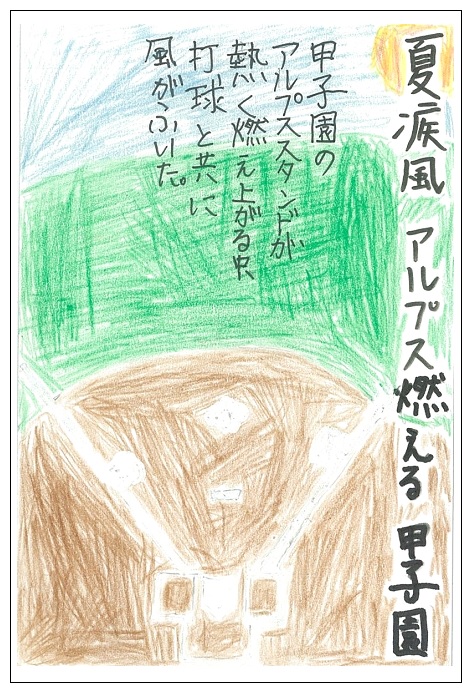 夏疾風 アルプス燃える 甲子園
甲子園の
アルプススタンドが
熱く燃え上がる中、
打球と共に
風がふいた。